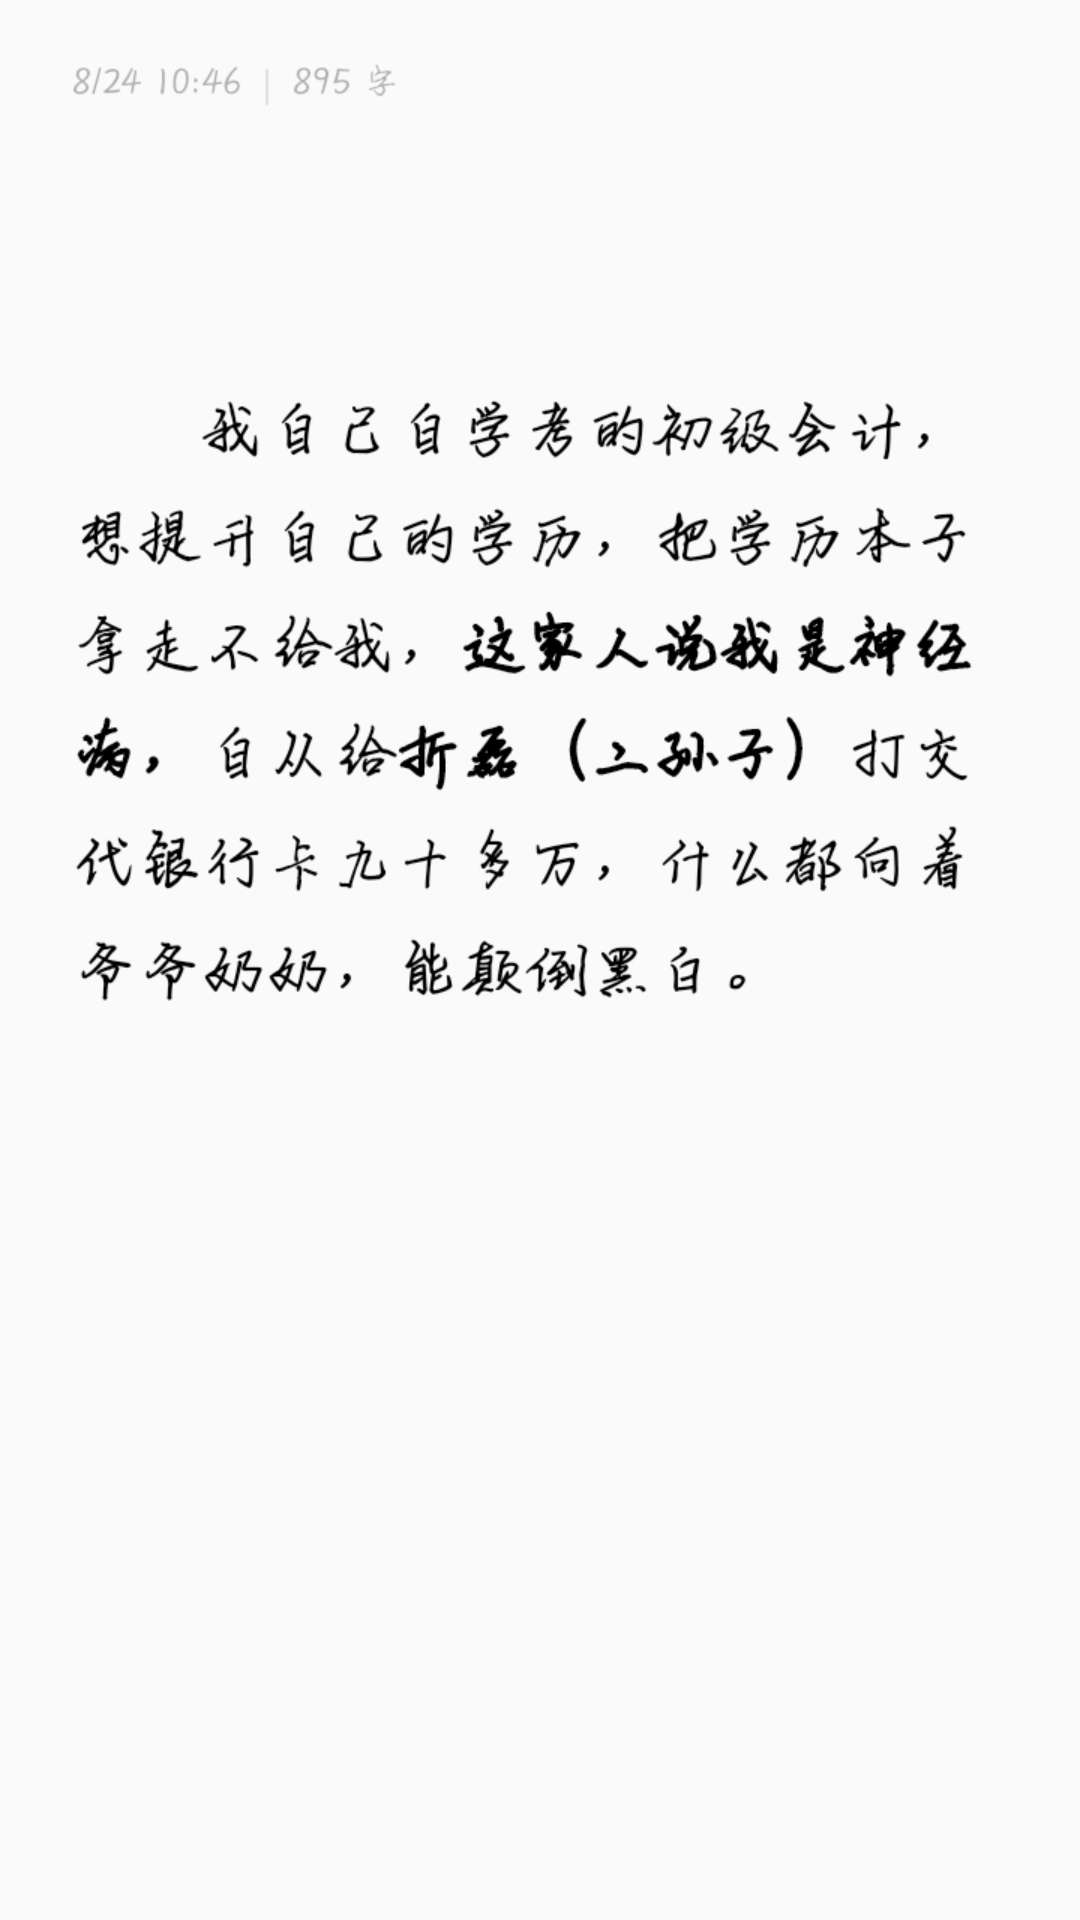 8/24 10:46 | 895 字
我自己自学考的初级会计，
想提升自己的学历，把学历本子
拿走不给我，这家人说我是神经
病，自从给折磊（二孙子）打交
代银行卡九十多万，什么都向着
爷爷奶奶，能颠倒黑白。